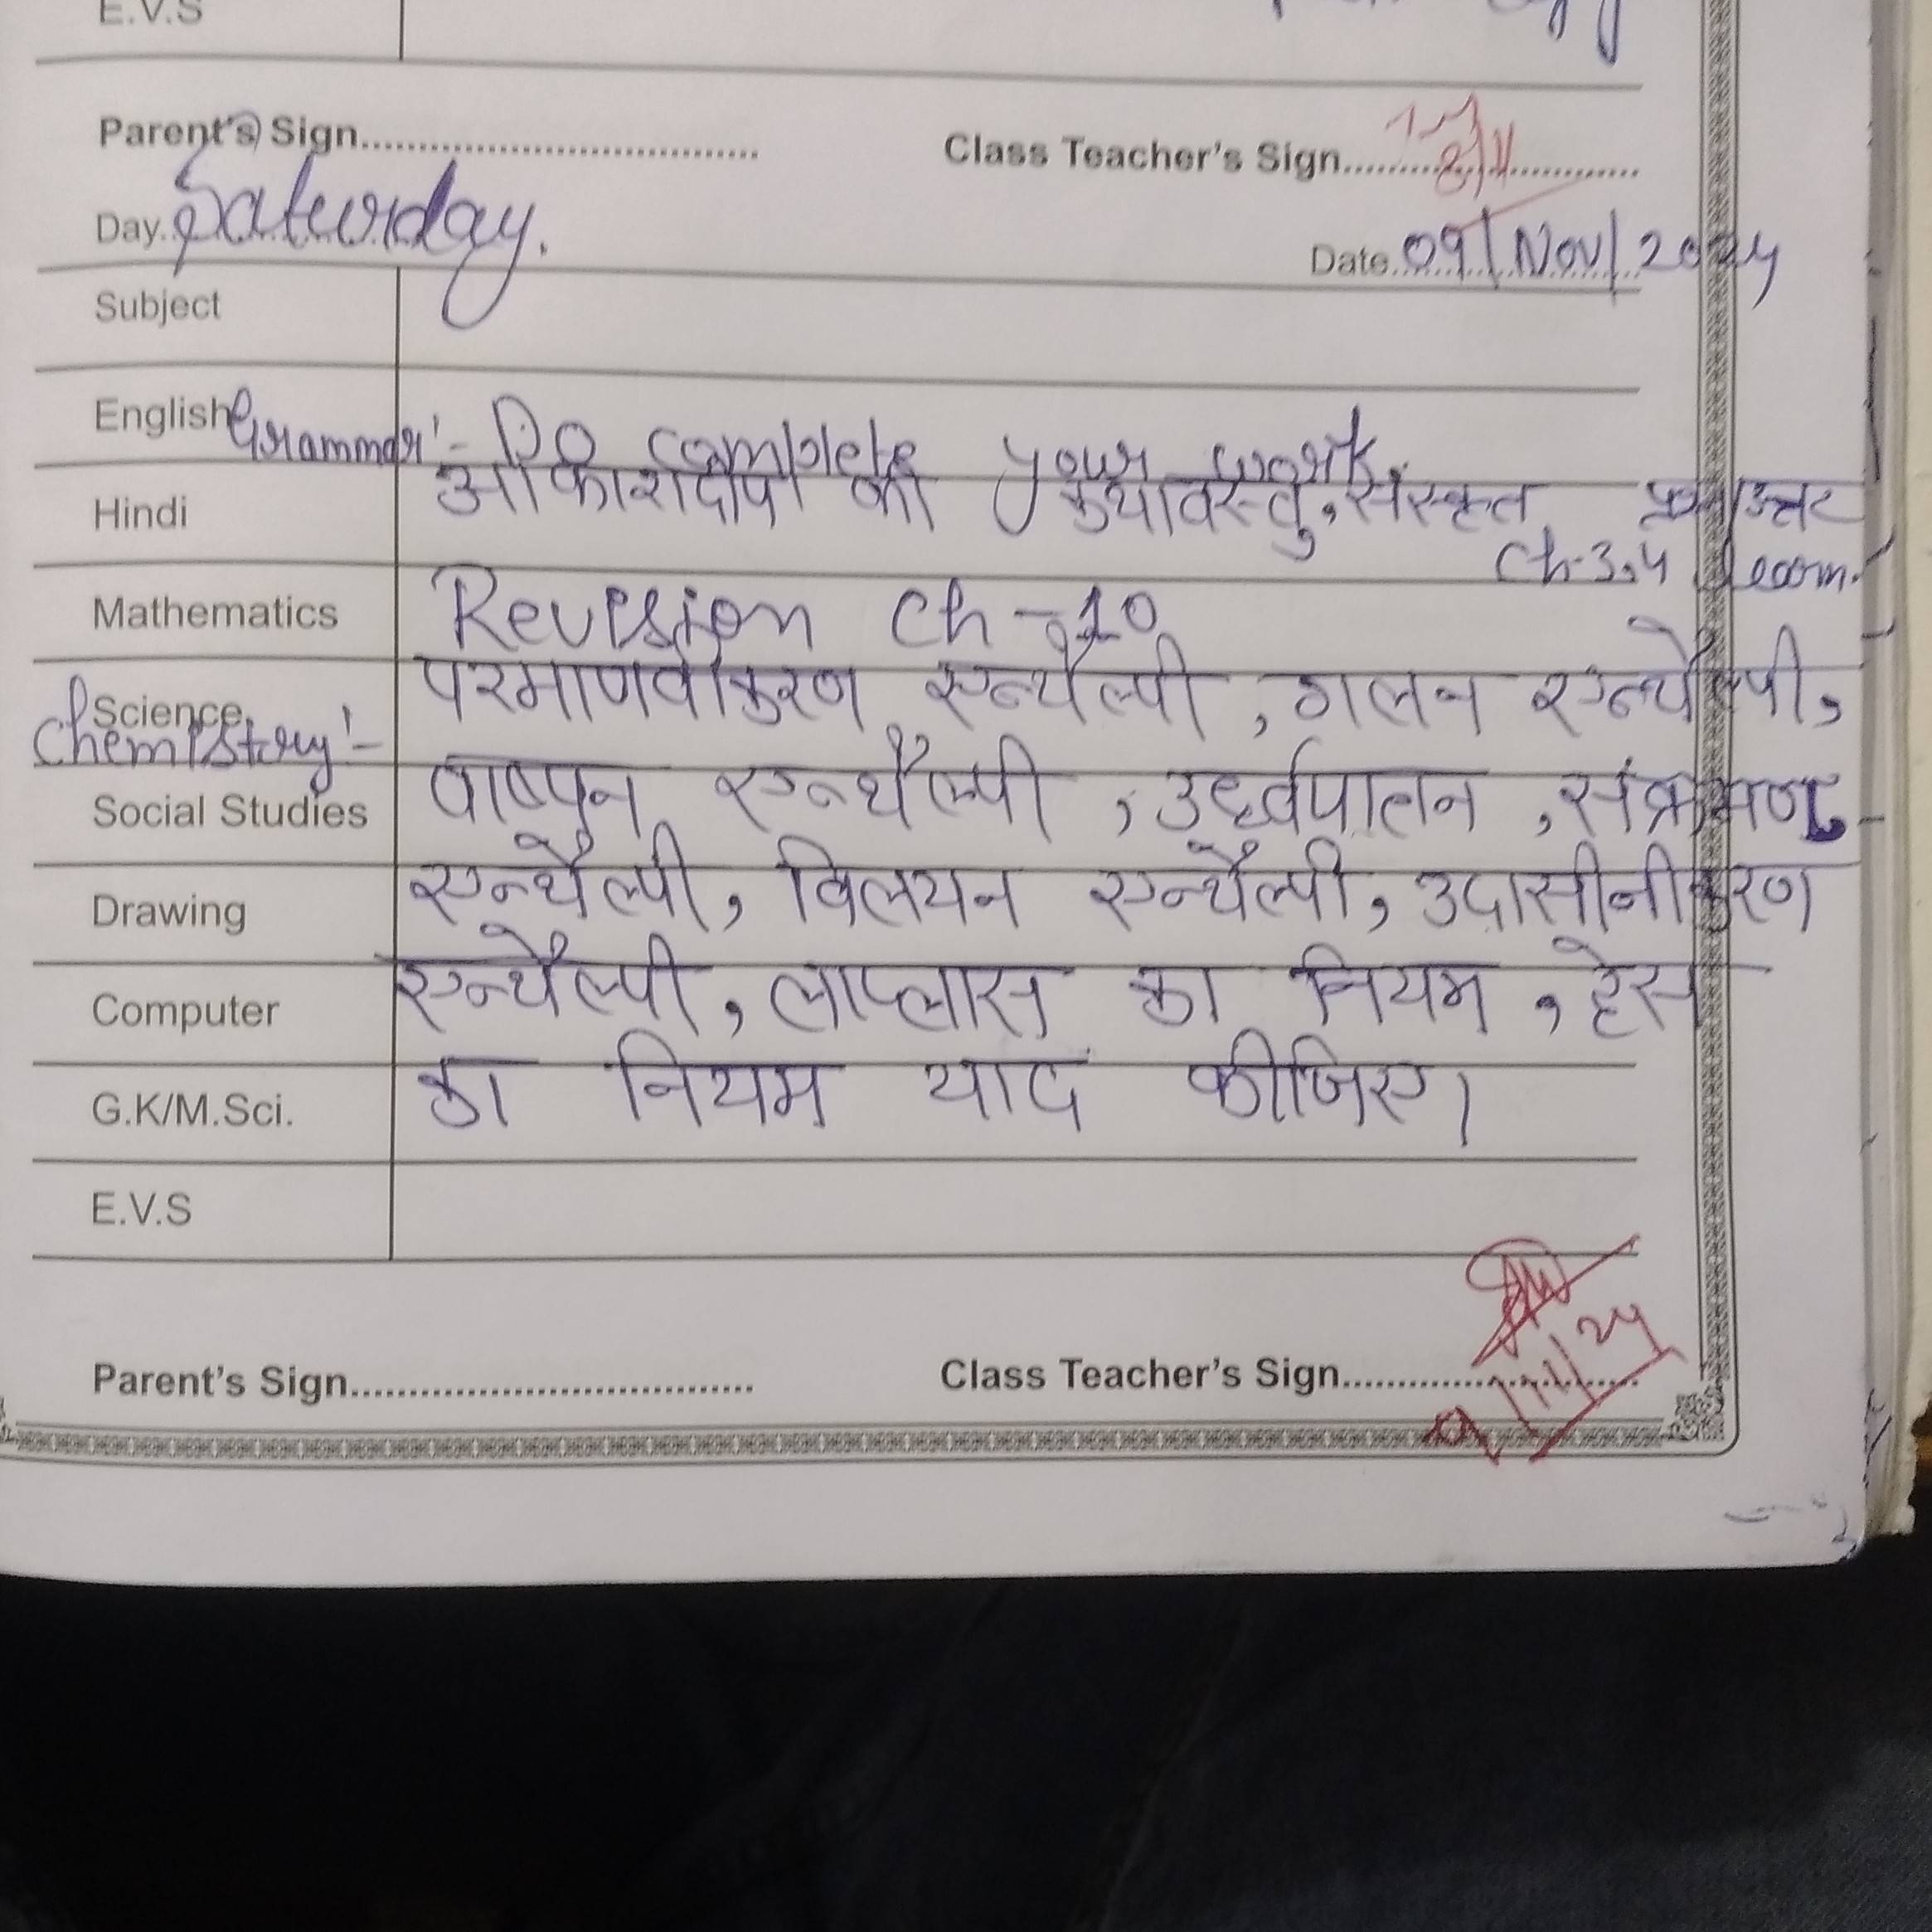 E.V.S
Parent's Sign
Class Teacher's Sign
8/11
Day Saturday.
Date 09/Nov/2024
Subject
English Grammar:- Do complete your work.
Hindi आकाशदीप की कथावस्तु, संस्कृत प्रश्न उत्तर
Ch-3,4 learn.
Mathematics Revision Ch-10
Science परमाणवीकरण एन्थैल्पी, गलन एन्थैल्पी,
Chemistory:-
Social Studies वाष्पन एन्थैल्पी, उर्ध्वपातन, संक्रमण
Drawing एन्थैल्पी, विलयन एन्थैल्पी, उदासीनीकरण
Computer एन्थैल्पी, लाप्लास का नियम, हेस
G.K/M.Sci. का नियम याद कीजिए।
E.V.S
Parent's Sign
Class Teacher's Sign
9/11/24